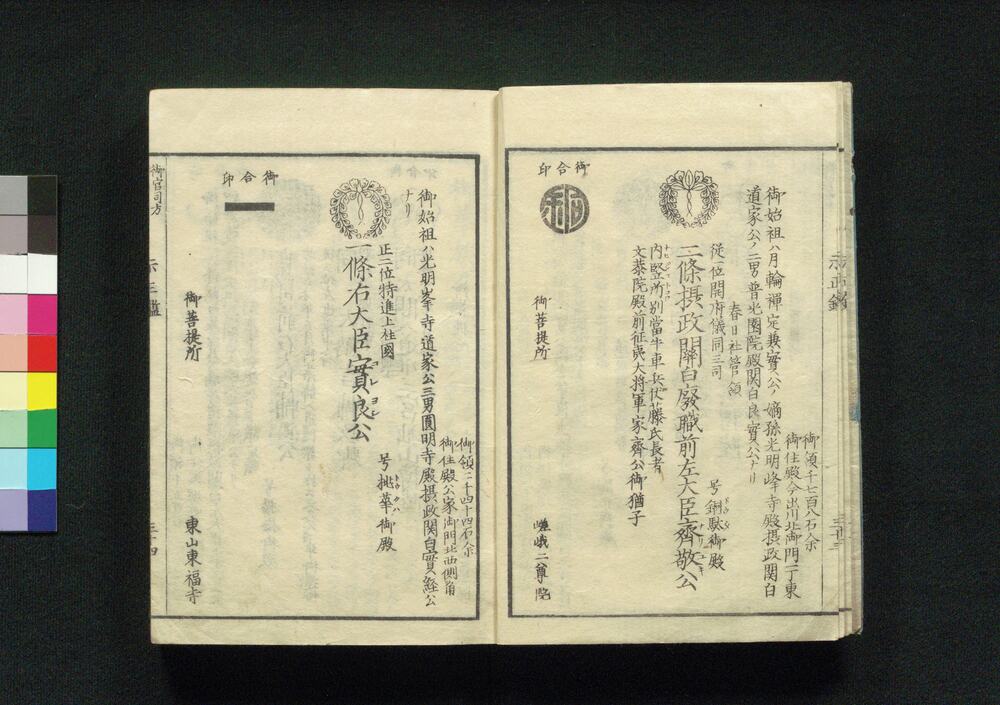 御領千七百八石余
御住殿今出川北御門丁東
御始祖ハ月輪禅定兼實公ノ嫡孫光明峰寺殿摂政関白
道家公ノ二男普光園院殿関白良實公ナリ
春日社管領
従一位開府儀同三司
号銅駄御殿
二條摂政関白廢職前左大臣齊敬公
内竪所別當牛車兵仗藤氏長者
文恭院殿前征夷大将軍家齊公御猶子
御合印
御菩提所
嵯峨二尊院
御領二千四十四石余
御住殿公家御門北西側角
御始祖ハ光明峯寺道家公三男圓明寺殿摂政関白實経公
ナリ
正二位特進上柱國
号桃華御殿
トウクハ
一條右大臣實良公
サ子ヨシ
御合印
御菩提所
東山東福寺
御官司方
三十四